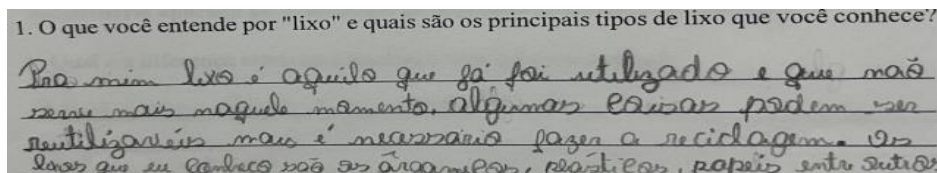 1. O que você entende por "lixo" e quais são os principais tipos de lixo que você conhece?
Pra mim lixo é aquilo que já foi utilizado e que não
serve mais naquele momento, algumas coisas podem ser
reutilizavéis mais é necessário fazer a reciclagem. Os
lixos que eu conheço são os órgamicos, plásticos, papeis entre outros